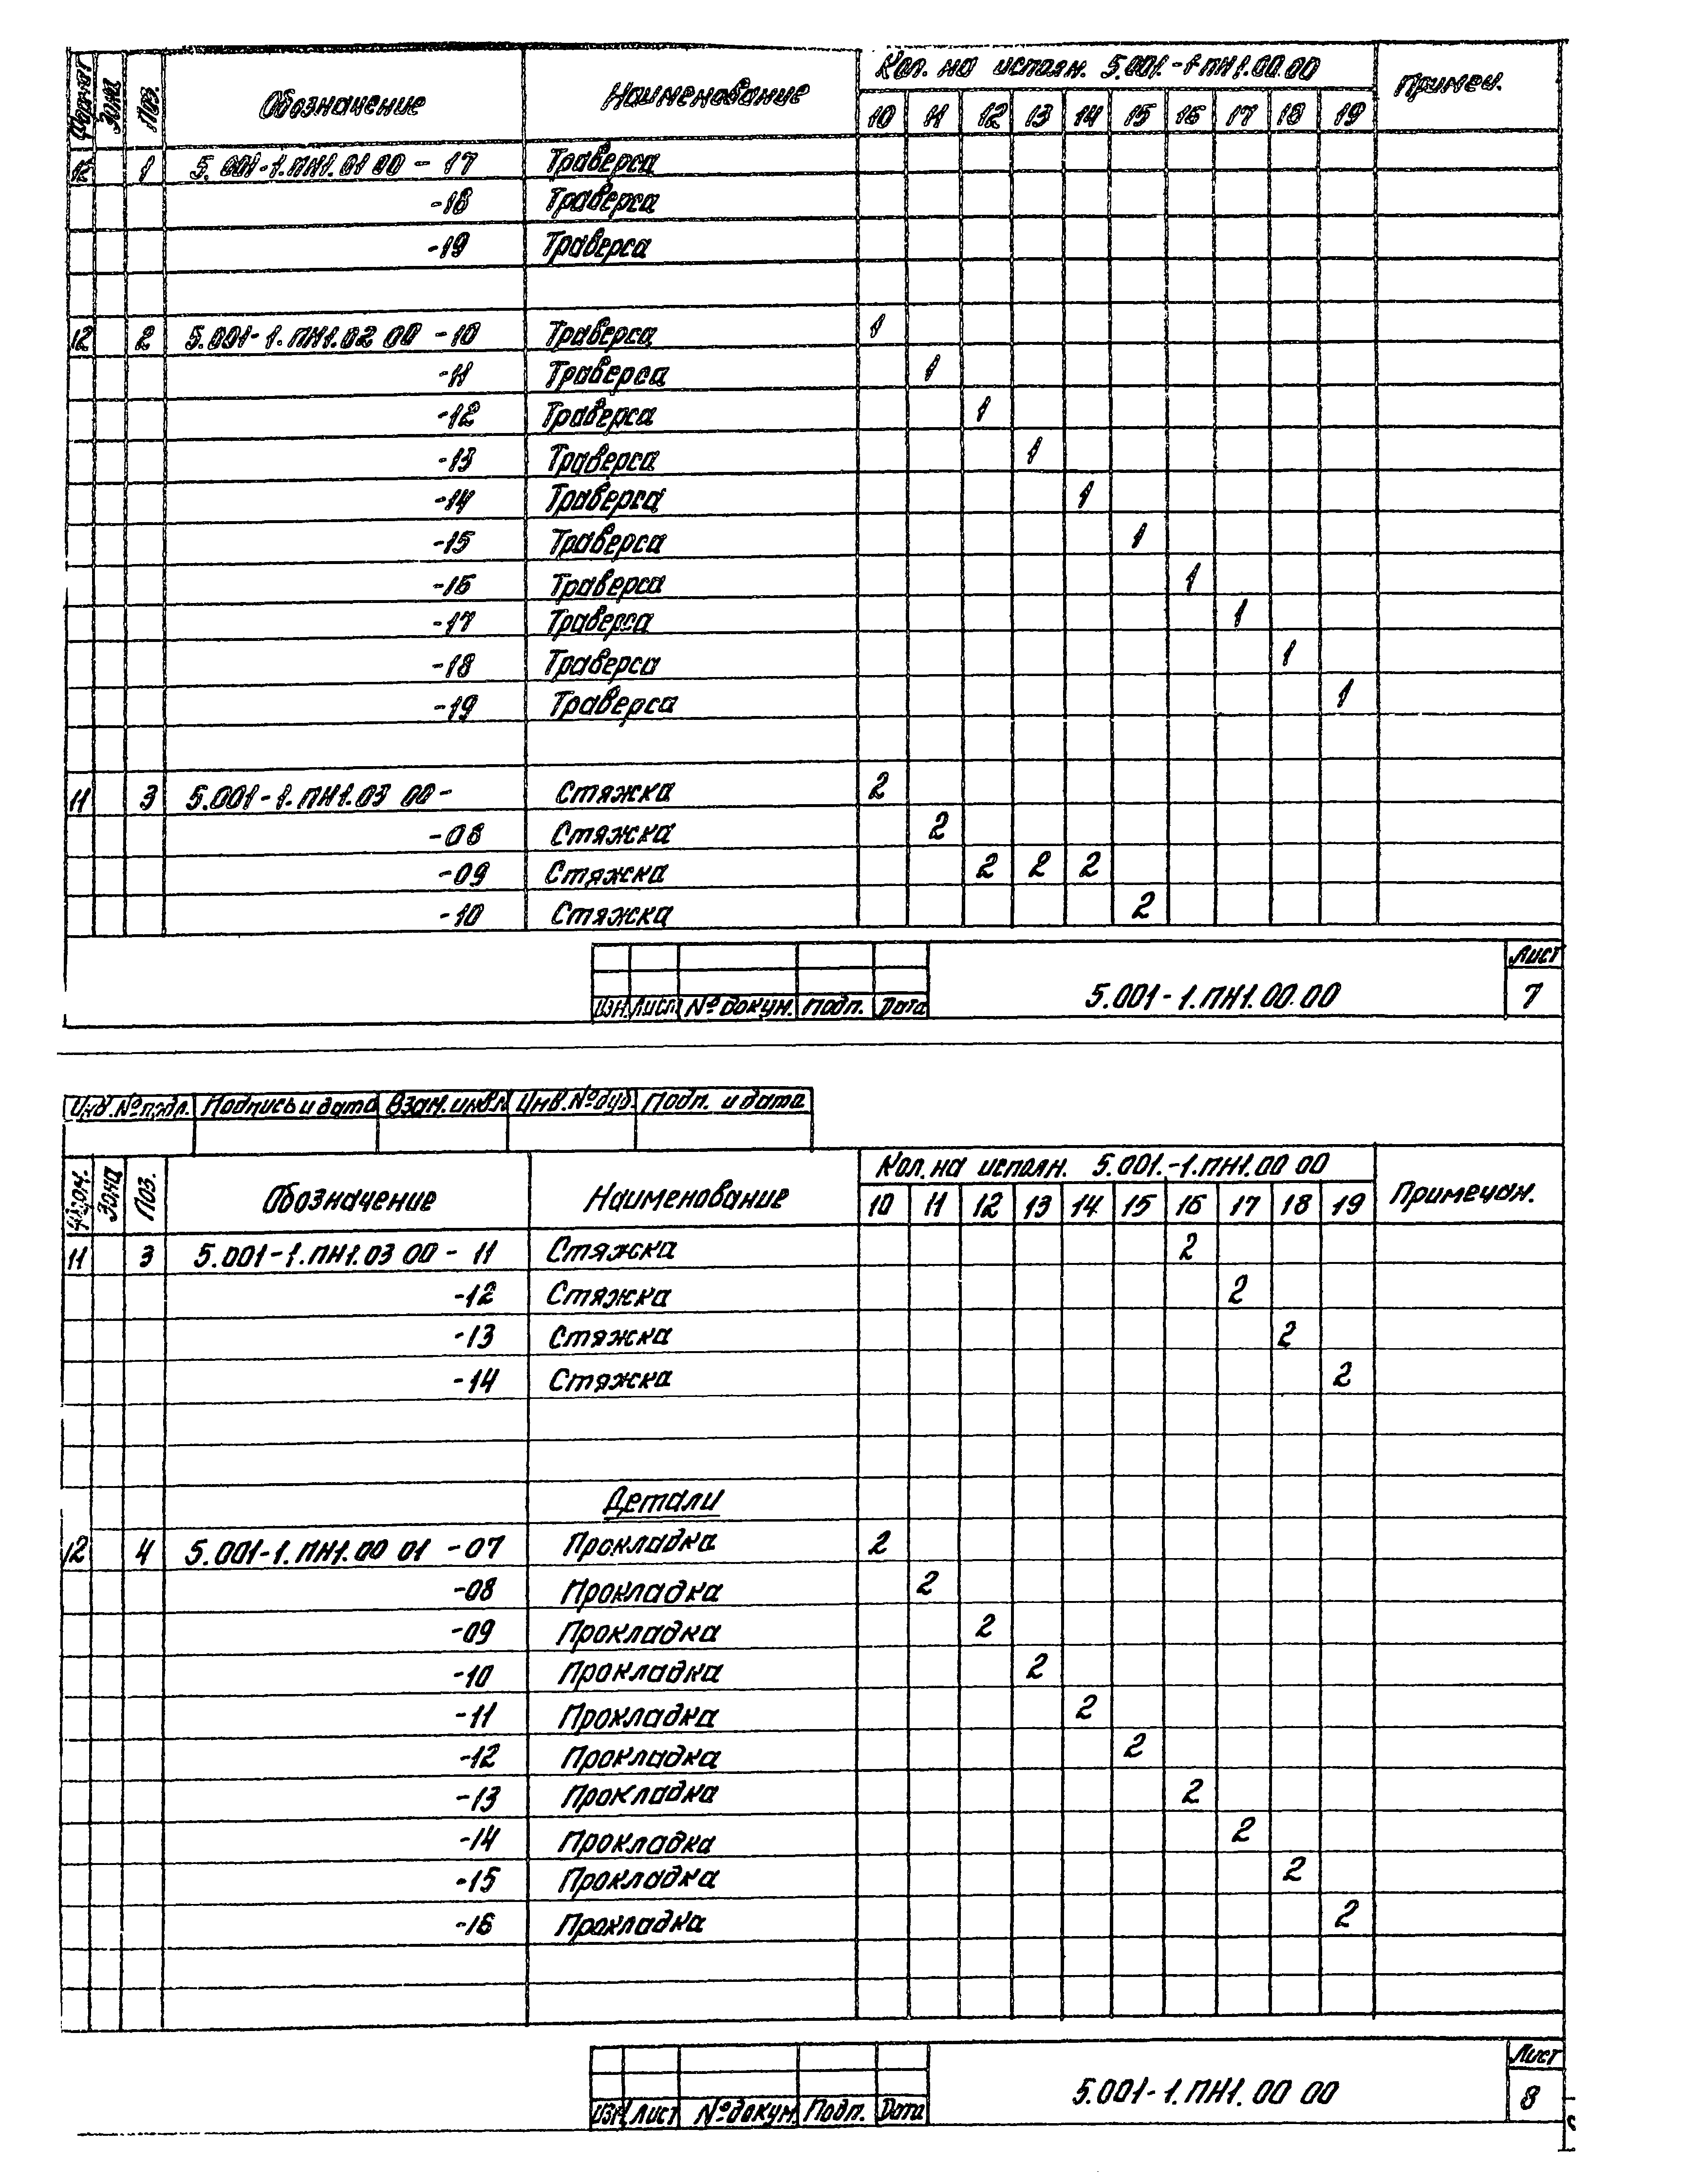 Формат Зона Поз. Обозначение Наименование Кол. на исполн. 5.001.-1ПН1.00.00 Примеч.
10 11 12 13 14 15 16 17 18 19
12 1 5.001-1.ПН1.01 00 - 17 Траверса
-18 Траверса
-19 Траверса
12 2 5.001-1.ПН1.02 00 -10 Траверса 1
-11 Траверса 1
-12 Траверса 1
-13 Траверса 1
-14 Траверса 1
-15 Траверса 1
-16 Траверса 1
-17 Траверса 1
-18 Траверса 1
-19 Траверса 1
11 3 5.001-1.ПН1.03 00- Стяжка 2
-08 Стяжка 2
-09 Стяжка 2 2 2
-10 Стяжка 2
Изм. Лист № докум. Подп. Дата 5.001-1.ПН1.00.00 Лист 7
Инв.№подл. Подпись и дата Взам.инв.№ Инв.№дуб. Подп. и дата
Форм. Зона Поз. Обозначение Наименование Кол.на исполн. 5.001.-1.ПН1.00 00 Примечан.
10 11 12 13 14 15 16 17 18 19
11 3 5.001-1.ПН1.03 00 - 11 Стяжка 2
-12 Стяжка 2
-13 Стяжка 2
-14 Стяжка 2
Детали
12 4 5.001-1.ПН1.00 01 -07 Прокладка 2
-08 Прокладка 2
-09 Прокладка 2
-10 Прокладка 2
-11 Прокладка 2
-12 Прокладка 2
-13 Прокладка 2
-14 Прокладка 2
-15 Прокладка 2
-16 Прокладка 2
Изм Лист №докум. Подп. Дата 5.001-1.ПН1.00 00 Лист 8